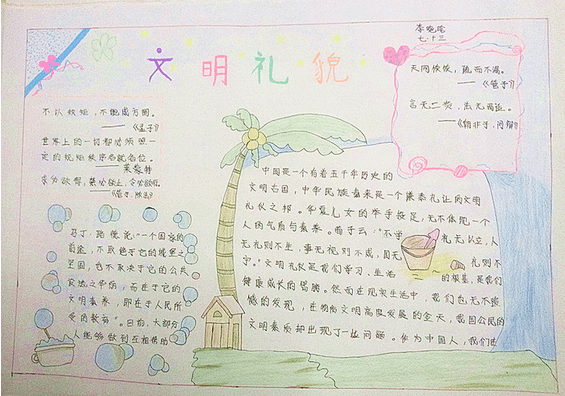 李晓珑
七.十三
文明礼貌
天网恢恢，疏而不漏。
——《老子》
言无二贵，法无两适。
——《韩非子·问辩》
不以规矩，不能成方圆。
——《孟子》
世界上的一切都必须按照一
定的规矩秩序各就各位。
——莱蒙特
求必欲得，禁必欲止，令必欲行。
——《管子·法法》
马丁·路德说:"一个国家的
前途，不取决于它的城堡之
坚固，也不取决于它的公共
设施之华丽，而在于它的
文明素养，即在于人民所
受的教育"。日前，大部分
人能够做到互相帮助
中国是一个有着五千年历史的
文明古国，中华民族素来是一个谦恭礼让的文明
礼仪之邦。华夏儿女的举手投足，无不体现一个
人的气质与素养。荀子云:"不学礼无以立，人
无礼则不生，事无礼则不成，国无礼则不
宁。"文明礼仪是我们学习、生活的根基，是我们
健康成长的臂膀。然而在现实生活中，我们也无不遗
憾的发现，在物质文明高度发展的今天，我国公民的
文明素质却出现了一些问题。作为中国人，我们也